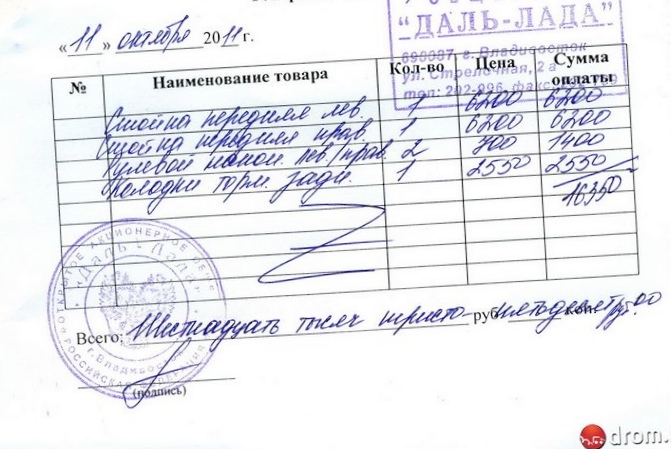 "ДАЛЬ-ЛАДА"
690087, г. Владивосток
ул. Стрелочная, 2 а
тел: 202-096, факс
«11» октября 2011 г.
№ Наименование товара Кол-во Цена Сумма оплаты
Стойка передняя лев. 1 6200 6200
Стойка передняя прав 1 6200 6200
Рулевой након. лев/прав. 2 700 1400
Колодки торм. задн. 1 2550 2550
16350
ОТКРЫТОЕ АКЦИОНЕРНОЕ ОБЩЕ
«Даль-Лада»
г. Владивосток
РОССИЙСКАЯ ФЕДЕРАЦИЯ
Всего: Шестнадцать тысяч тристо- руб. пятьдесят руб. 00 коп.
(подпись)
drom.